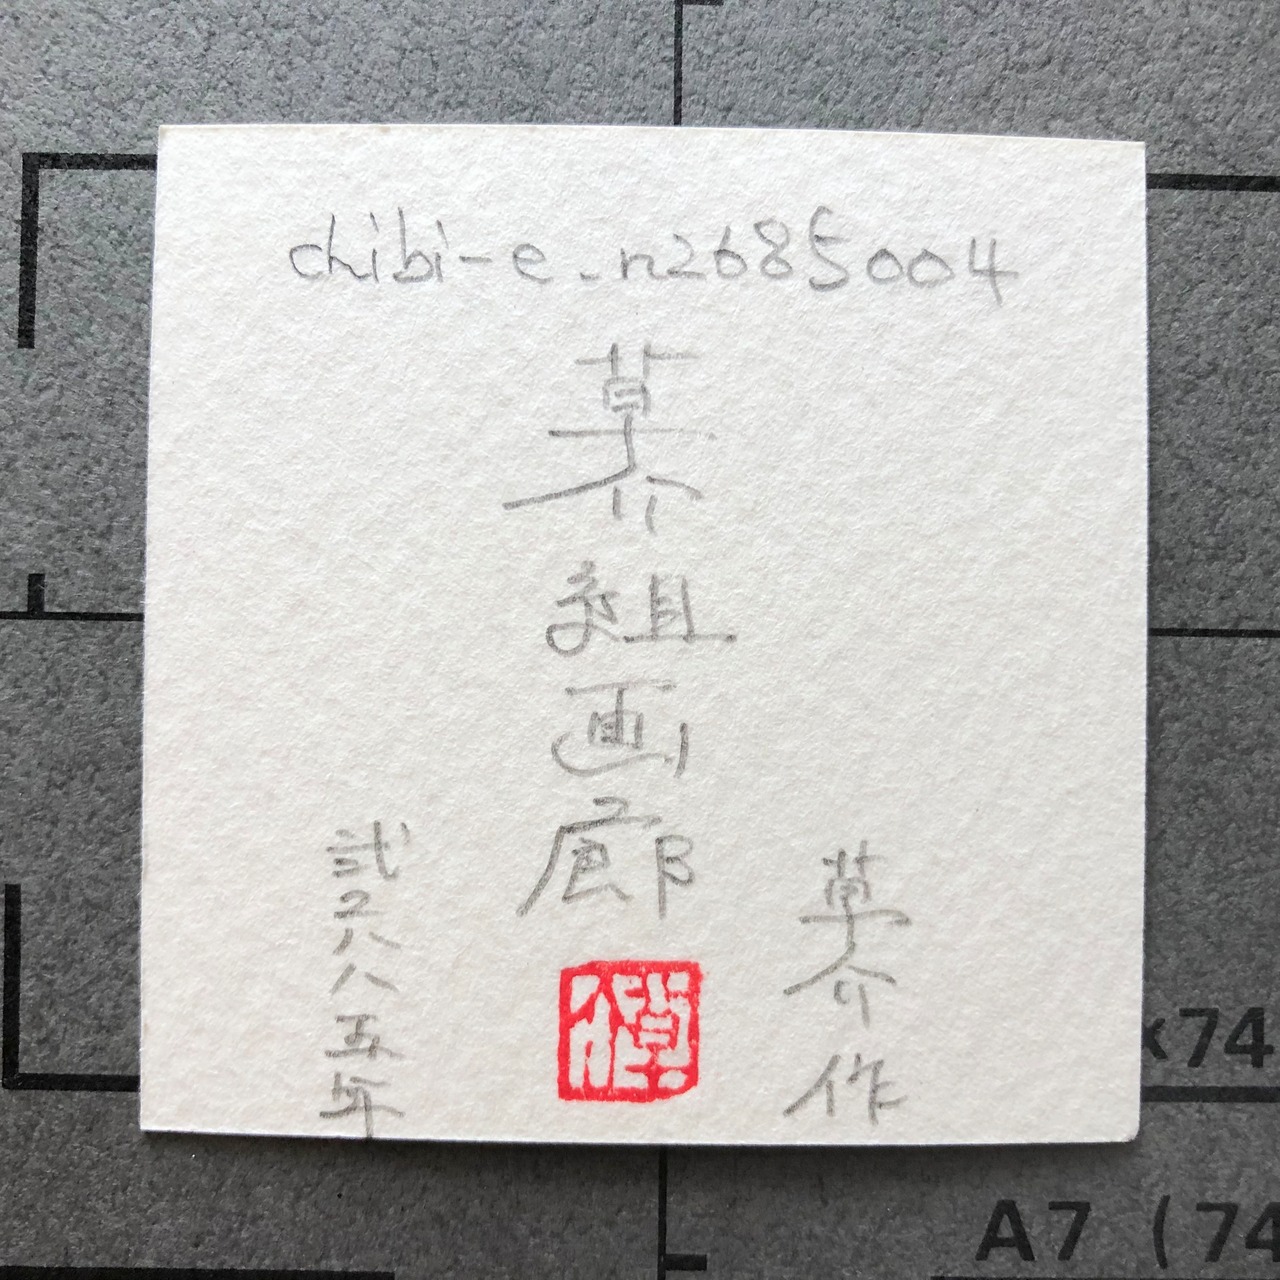 chibi-e_n2685004
草介組画廊
草介作
弐六八五年
草介
x74
A7 (74